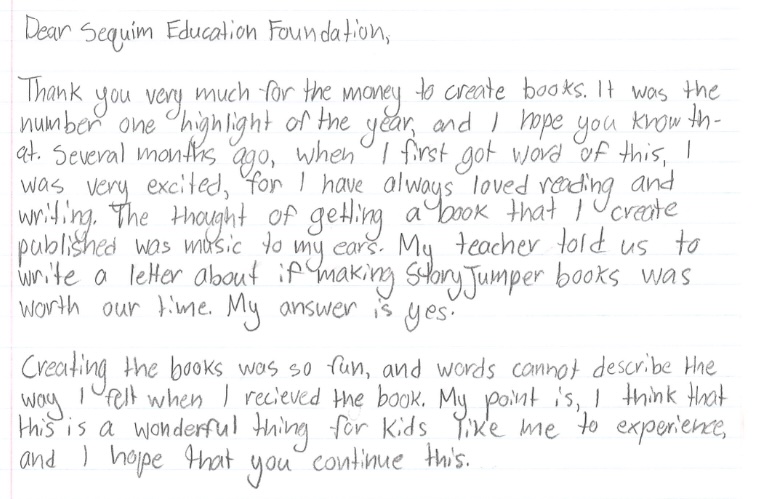 Dear Sequim Education Foundation,
Thank you very much for the money to create books. It was the
number one highlight of the year, and I hope you know th-
at. Several months ago, when I first got word of this, I
was very excited, for I have always loved reading and
writing. The thought of getting a book that I create
published was music to my ears. My teacher told us to
write a letter about if making StoryJumper books was
worth our time. My answer is yes.
Creating the books was so fun, and words cannot describe the
way I felt when I recieved the book. My point is, I think that
this is a wonderful thing for kids like me to experience,
and I hope that you continue this.